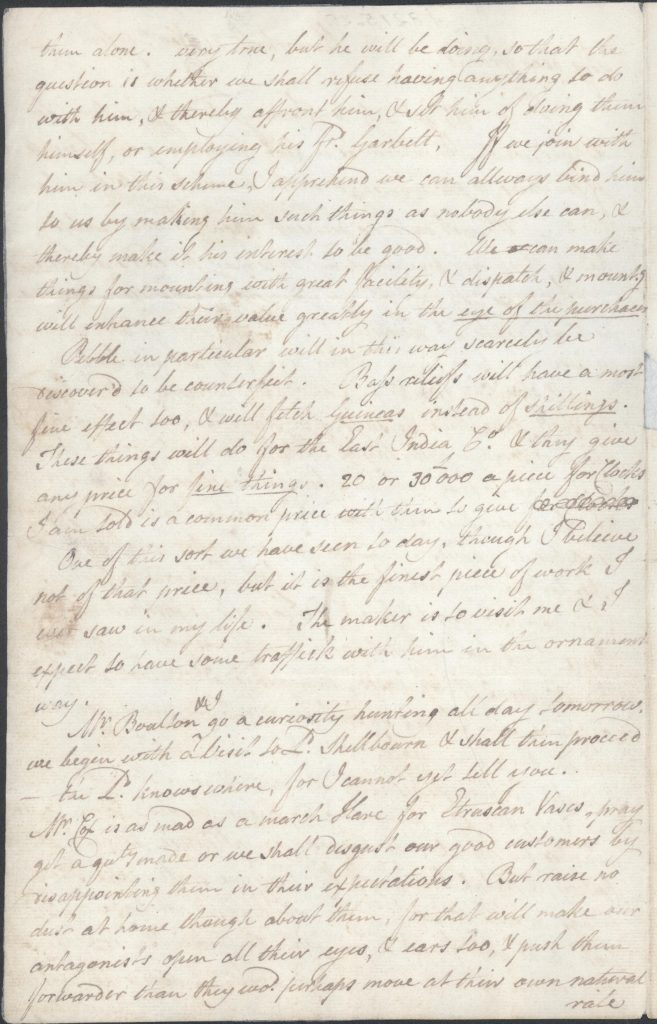 them alone. very true, but he will be doing, so that the
question is whether we shall refuse having anything to do
with him, & thereby affront him, & set him of doing them
himself, or employing his fr. Garbett. If we join with
him in this scheme, I apprehend we can allways bind him
to us by making him such things as nobody else can, &
thereby make it his interest to be good. We can make
things for mounting with great facility, & dispatch, & mountg
will enhance their value greatly in the eye of the purchacer
Pebble in particular will in this way scarcely be
discover'd to be counterfeit. Bass reliefs will have a most
fine effect too, & will fetch Guineas instead of shillings.
These things will do for the East India Co. & they give
any price for fine things. 20 or 30000 a piece for Clocks
I am told is a common price with them to give
One of this sort we have seen to day, though I believe
not of that price, but it is the finest piece of work I
ever saw in my life. The maker is to visit me & I
expect to have some traffick with him in the ornament
way.
Mr. Boulton & I go a curiosity hunting all day tomorrow.
we begin with a Visit to Ld. Shelbourn & shall then proceed
— the Ld. knows where, for I cannot yet tell you.
Mr. Cox is as mad as a march Hare for Etruscan Vases, pray
get a qu'ty made or we shall disgust our good customers by
disappointing them in their expectations. But raise no
dust at home though about them, for that will make our
antagonists open all their eyes, & ears too, & push them
forwarder than they wod. perhaps move at their own natural
rate